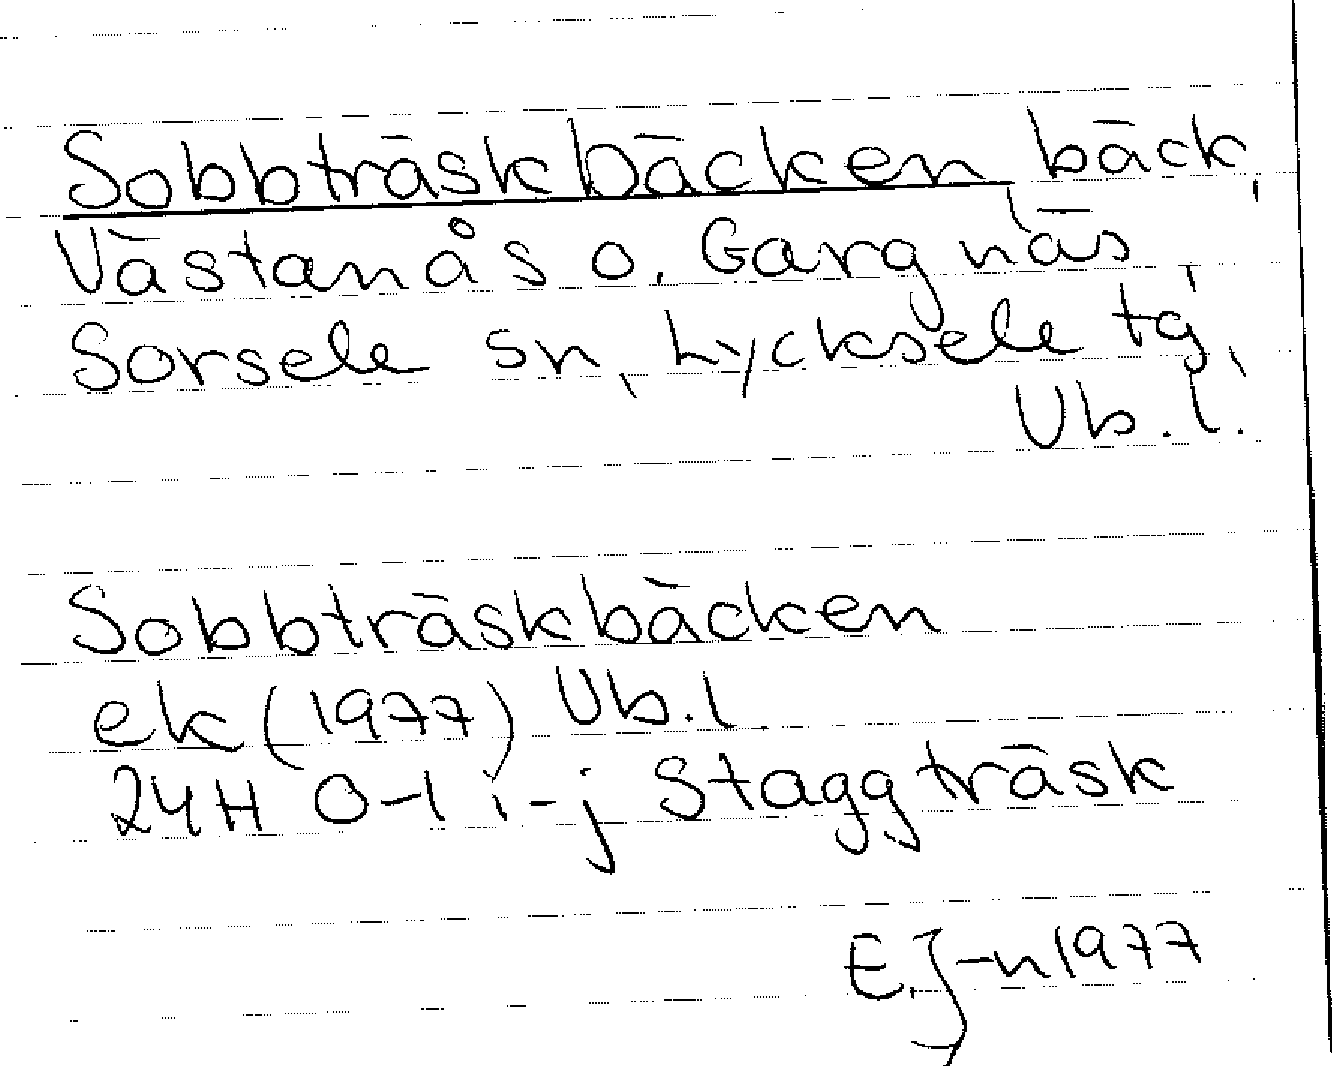 Sobbträskbäcken bäck,
Västanås o. Gargnäs
Sorsele sn, Lycksele tg,
Vb. l.
Sobbträskbäcken
ek (1977) Vb. l
24H 0-1 i-j Staggträsk
E.J-n 1977